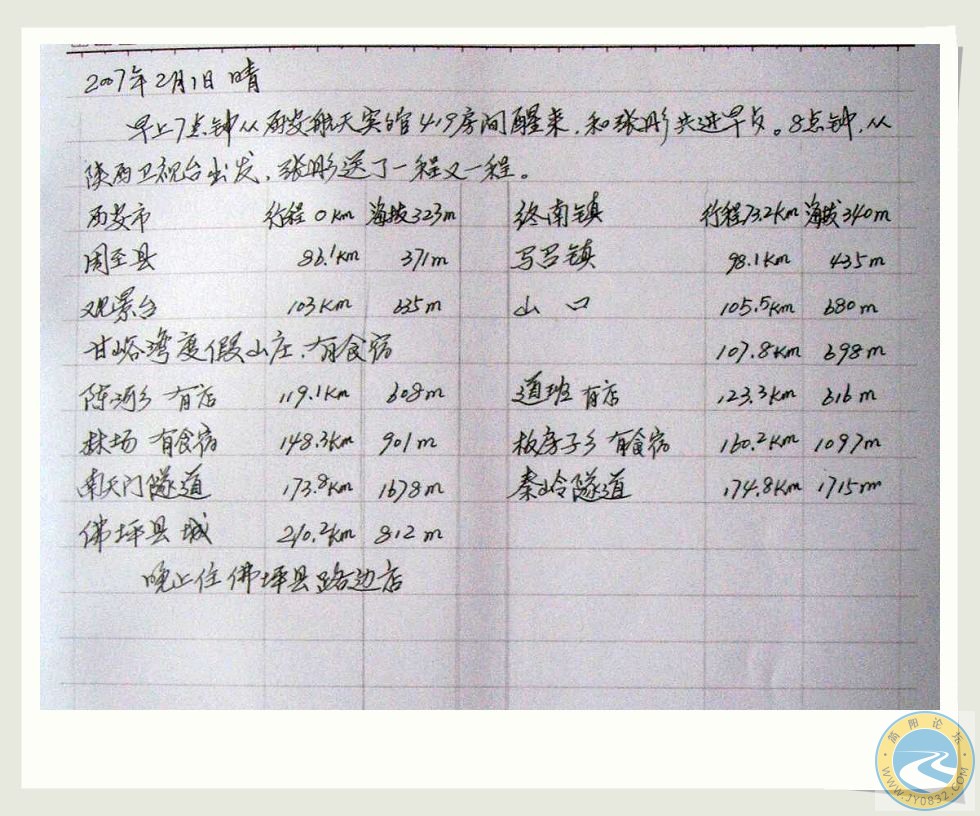 2007年2月1日 晴
早上7点钟从西安航天宾馆419房间醒来,和张彤共进早点。8点钟,从
陕西卫视台出发,张彤送了一程又一程。
西安市 行程 0 Km 海拔323m 终南镇 行程73.2Km 海拔340m
周至县 86.1Km 371m 马召镇 98.1Km 435m
观景台 103Km 635m 山口 105.5Km 680m
甘峪湾度假山庄.有食宿 107.8Km 698m
陈河乡 有店 119.1Km 608m 道班 有店 123.3Km 616m
林场 有食宿 148.3Km 901m 板房子乡 有食宿 160.2Km 1097m
南天门隧道 173.8Km 1678m 秦岭隧道 174.8Km 1715m
佛坪县城 210.2Km 812m
晚上住佛坪县路边店
简阳论坛
WWW.JY0832.COM